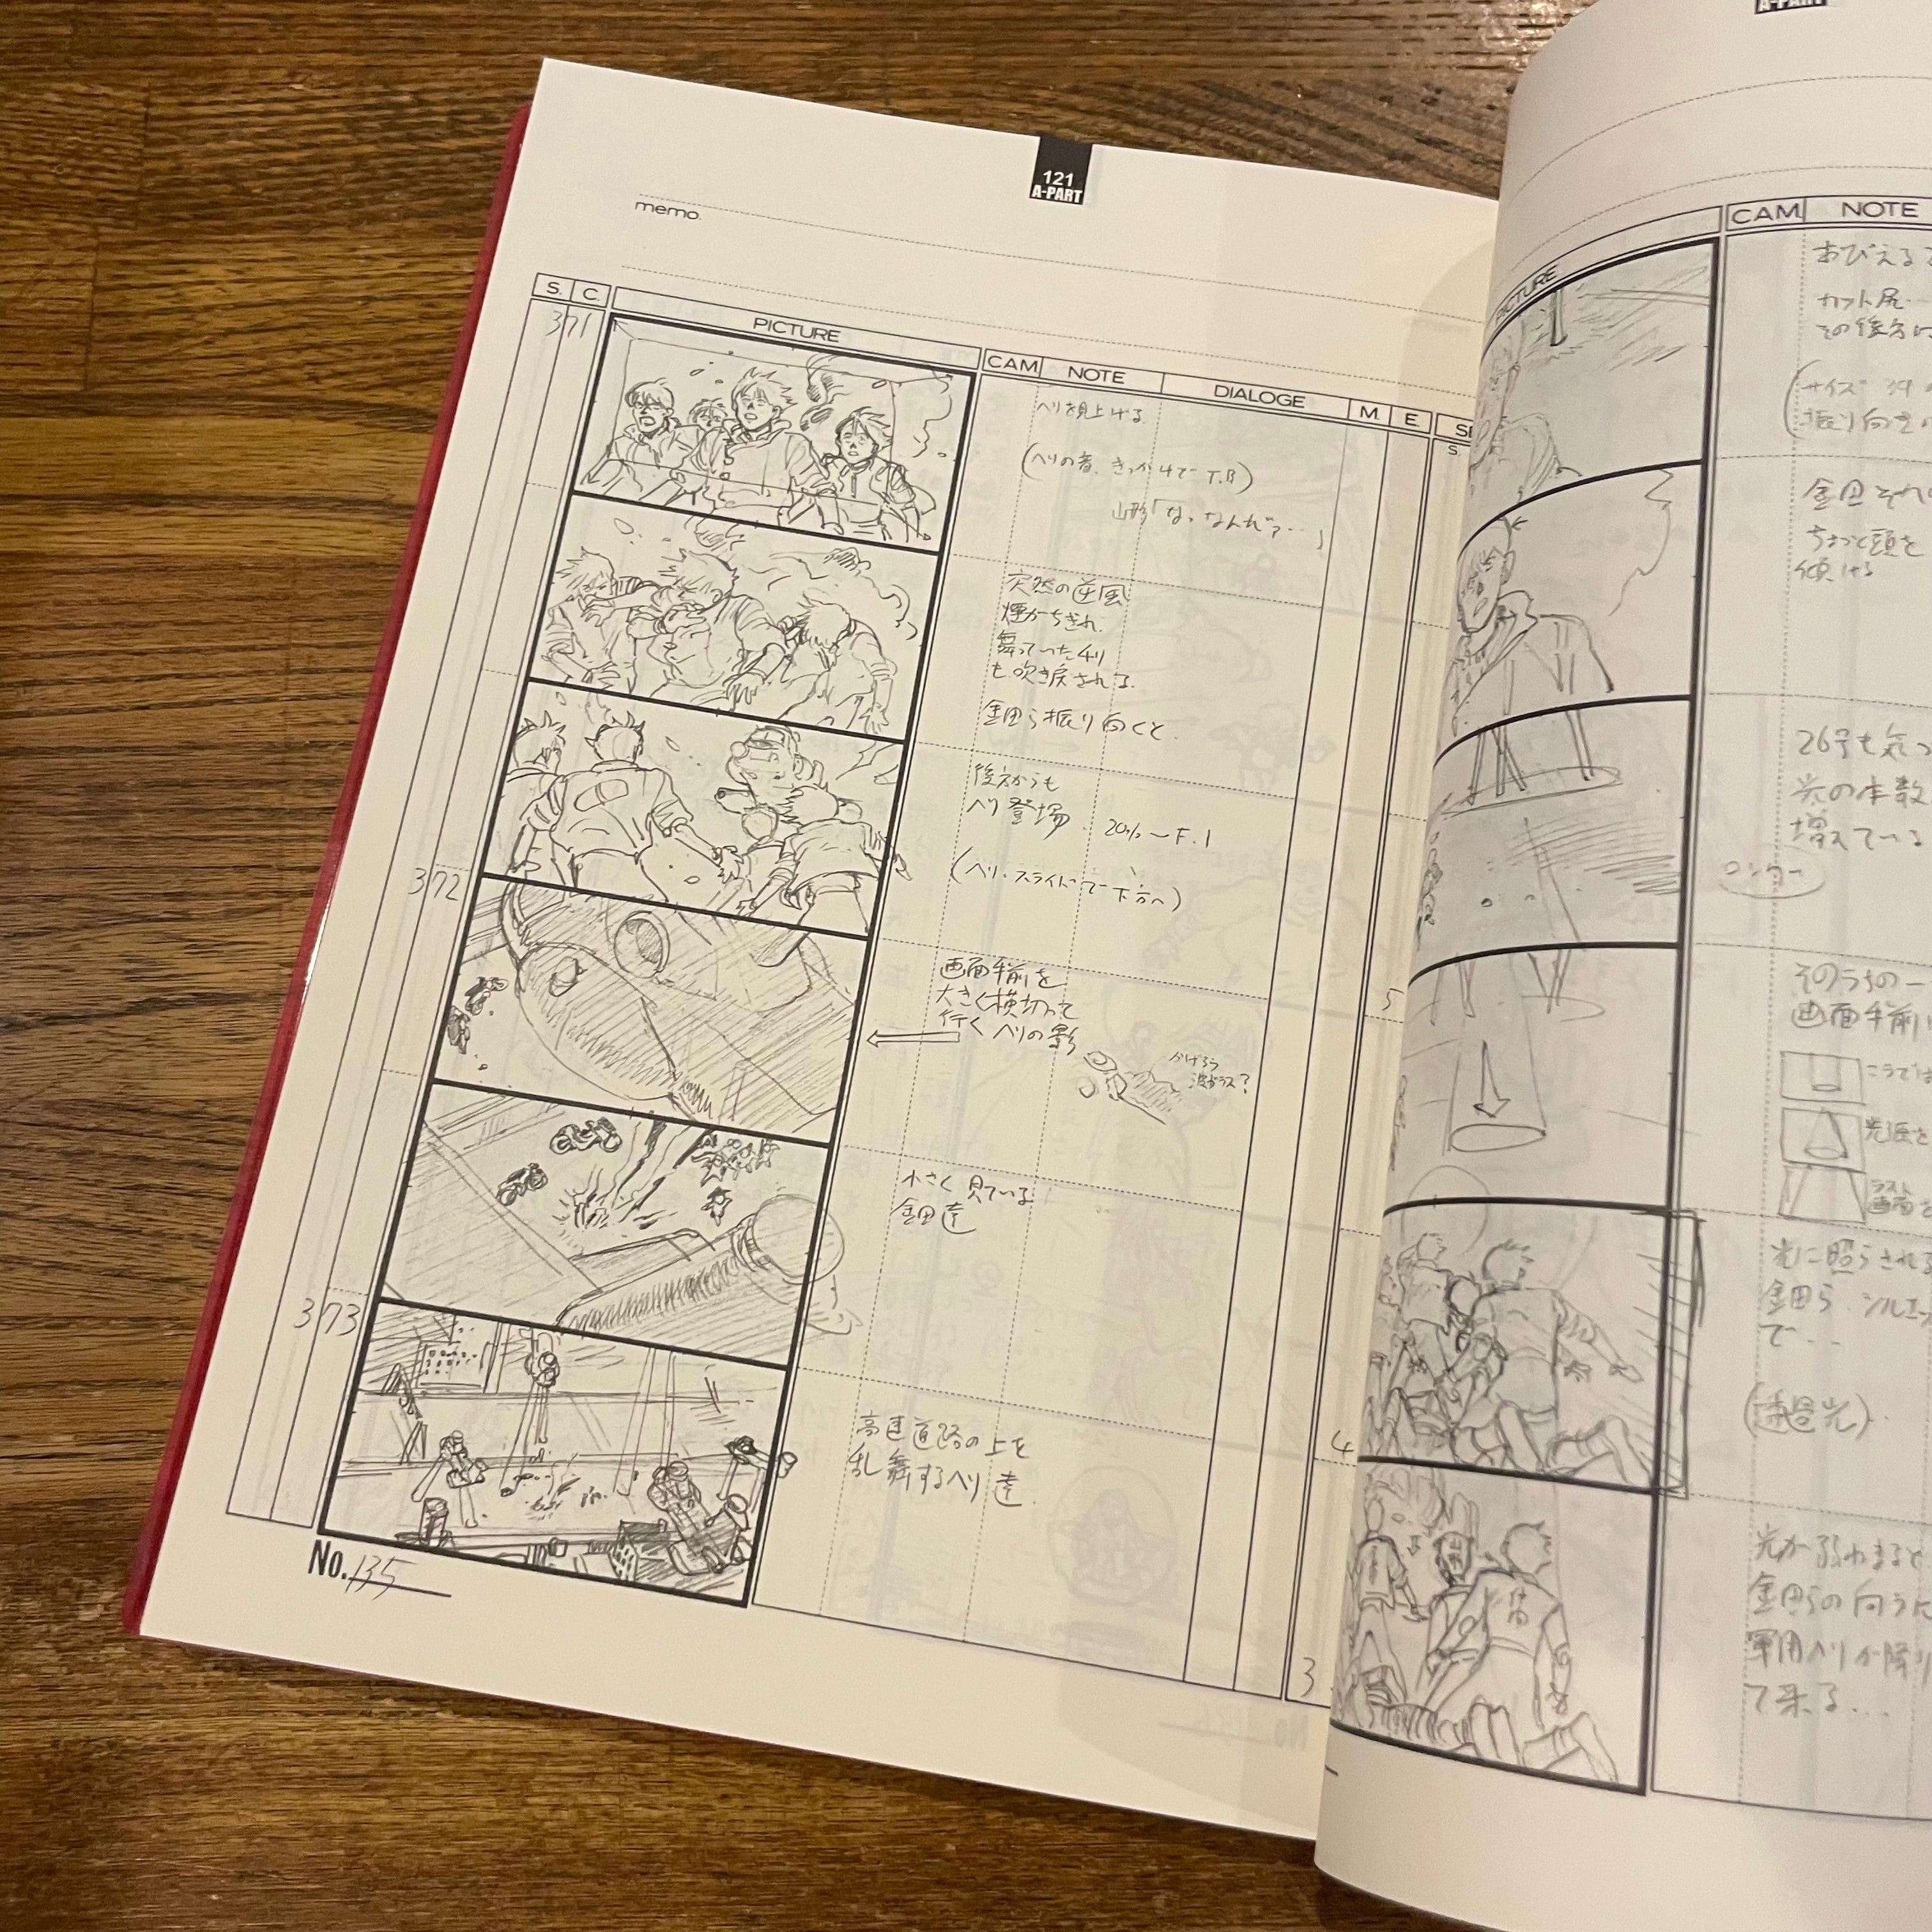 121
A-PART
memo.
S. C. PICTURE CAM NOTE DIALOGE M. E.
S.
371
ヘリを見上げる
(ヘリの音、きっかけで T.B)
山形「なっなんだ?…」
突然の逆風
煙がちぎれ
舞っていたチリ
も吹き戻される
金田ら振り向くと
後方からも
ヘリ登場
F.I
(ヘリ・スライドで下方へ)
372
画面手前を
大きく横切って
行くヘリの影
かげろう
波ガラス?
小さく見ている
金田達
373
高速道路の上を
乱舞するヘリ達
5
4
3
No. 135
A-PART
PICTURE CAM NOTE
おびえる
カット尻
その後
サイズ
振り向き
金田
ちょっと頭を
傾ける
26号も気づ
光の本数
増えている
そのうちの一
画面手前
こうでは
光源を
ラスト
画面
光に照らされる
金田ら、シルエッ
で…
(透過光)
光が弱わまると
金田らの向うに
軍用ヘリが降り
て来る…